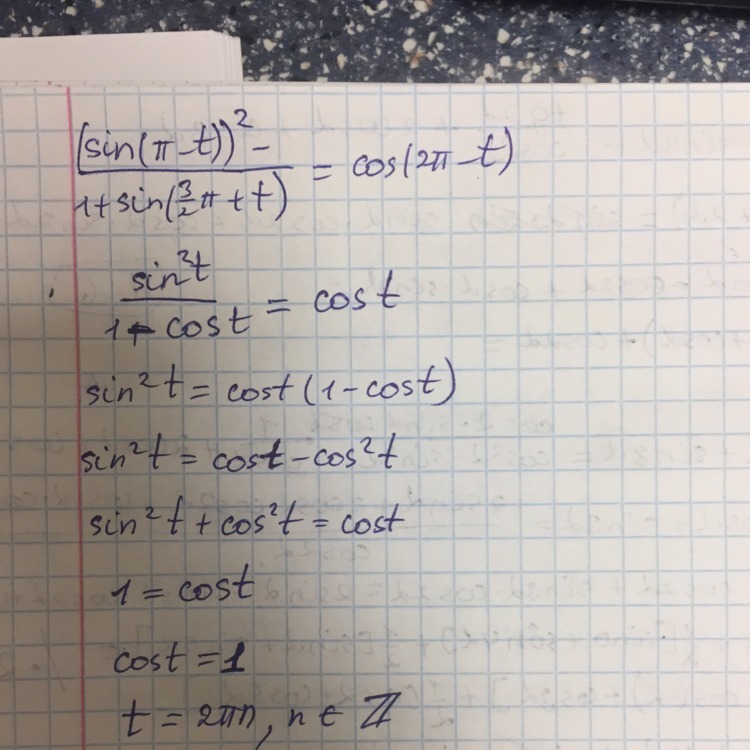 (sin(π-t))² -
1+sin(3/2 π+t) = cos(2π-t)
sin²t
1 - cost = cost
sin²t = cost(1-cost)
sin²t = cost-cos²t
sin²t+cos²t=cost
1 = cost
cost =1
t = 2πn, n∈ℤ